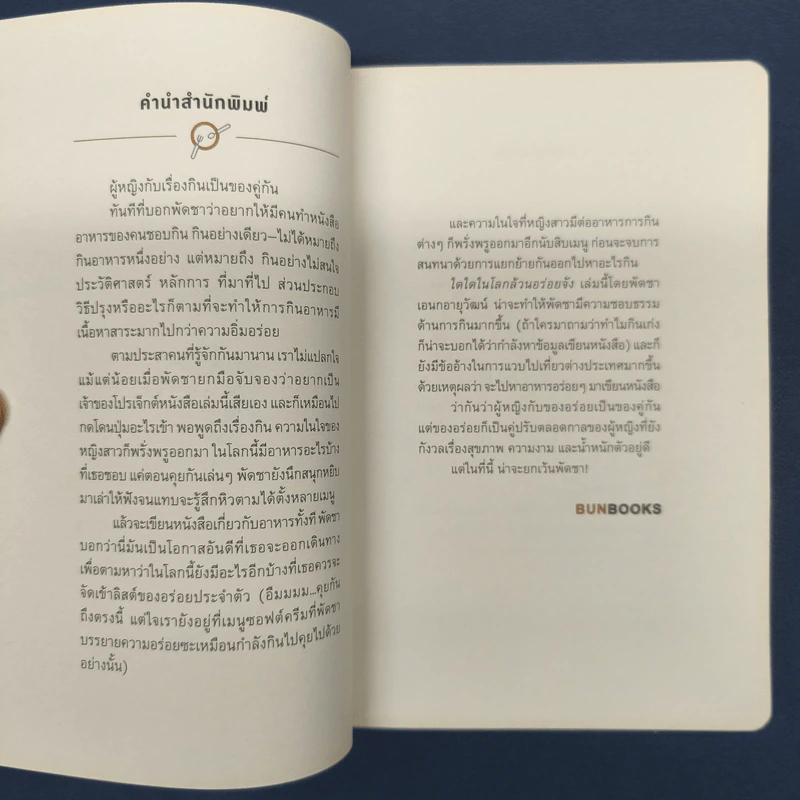 คำนำสำนักพิมพ์
ผู้หญิงกับเรื่องกินเป็นของคู่กัน
ทันทีที่บอกพัดชาว่าอยากให้มีคนทำหนังสือ
อาหารของคนชอบกิน กินอย่างเดียว—ไม่ได้หมายถึง
กินอาหารหนึ่งอย่าง แต่หมายถึง กินอย่างไม่สนใจ
ประวัติศาสตร์ หลักการ ที่มาที่ไป ส่วนประกอบ
วิธีปรุงหรืออะไรก็ตามที่จะทำให้การกินอาหารมี
เนื้อหาสาระมากไปกว่าความอิ่มอร่อย
ตามประสาคนที่รู้จักกันมานาน เราไม่แปลกใจ
แม้แต่น้อยเมื่อพัดชายกมือจับจองว่าอยากเป็น
เจ้าของโปรเจ็กต์หนังสือเล่มนี้เสียเอง และก็เหมือนไป
กดโดนปุ่มอะไรเข้า พอพูดถึงเรื่องกิน ความในใจของ
หญิงสาวก็พรั่งพรูออกมา ในโลกนี้มีอาหารอะไรบ้าง
ที่เธอชอบ แค่ตอนคุยกันเล่นๆ พัดชายังนึกสนุกหยิบ
มาเล่าให้ฟังจนแทบจะรู้สึกหิวตามได้ตั้งหลายเมนู
แล้วจะเขียนหนังสือเกี่ยวกับอาหารทั้งที พัดชา
บอกว่านี่มันเป็นโอกาสอันดีที่เธอจะออกเดินทาง
เพื่อตามหาว่าในโลกนี้ยังมีอะไรอีกบ้างที่เธอควรจะ
จัดเข้าลิสต์ของอร่อยประจำตัว (อืมมมม...คุยกัน
ถึงตรงนี้ แต่ใจเรายังอยู่ที่เมนูซอฟต์ครีมที่พัดชา
บรรยายความอร่อยซะเหมือนกำลังกินไปคุยไปด้วย
อย่างนั้น)
และความในใจที่หญิงสาวมีต่ออาหารการกิน
ต่างๆ ก็พรั่งพรูออกมาอีกนับสิบเมนู ก่อนจะจบการ
สนทนาด้วยการแยกย้ายกันออกไปหาอะไรกิน
ใดใดในโลกล้วนอร่อยจัง เล่มนี้โดยพัดชา
เอนกอายุวัฒน์ น่าจะทำให้พัดชามีความชอบธรรม
ด้านการกินมากขึ้น (ถ้าใครมาถามว่าทำไมกินเก่ง
ก็น่าจะบอกได้ว่ากำลังหาข้อมูลเขียนหนังสือ) และก็
ยังมีข้ออ้างในการแวบไปเที่ยวต่างประเทศมากขึ้น
ด้วยเหตุผลว่า จะไปหาอาหารอร่อยๆ มาเขียนหนังสือ
ว่ากันว่าผู้หญิงกับของอร่อยเป็นของคู่กัน
แต่ของอร่อยก็เป็นคู่ปรับตลอดกาลของผู้หญิงที่ยัง
กังวลเรื่องสุขภาพ ความงาม และน้ำหนักตัวอยู่ดี
แต่ในที่นี้ น่าจะยกเว้นพัดชา!
BUNBOOKS